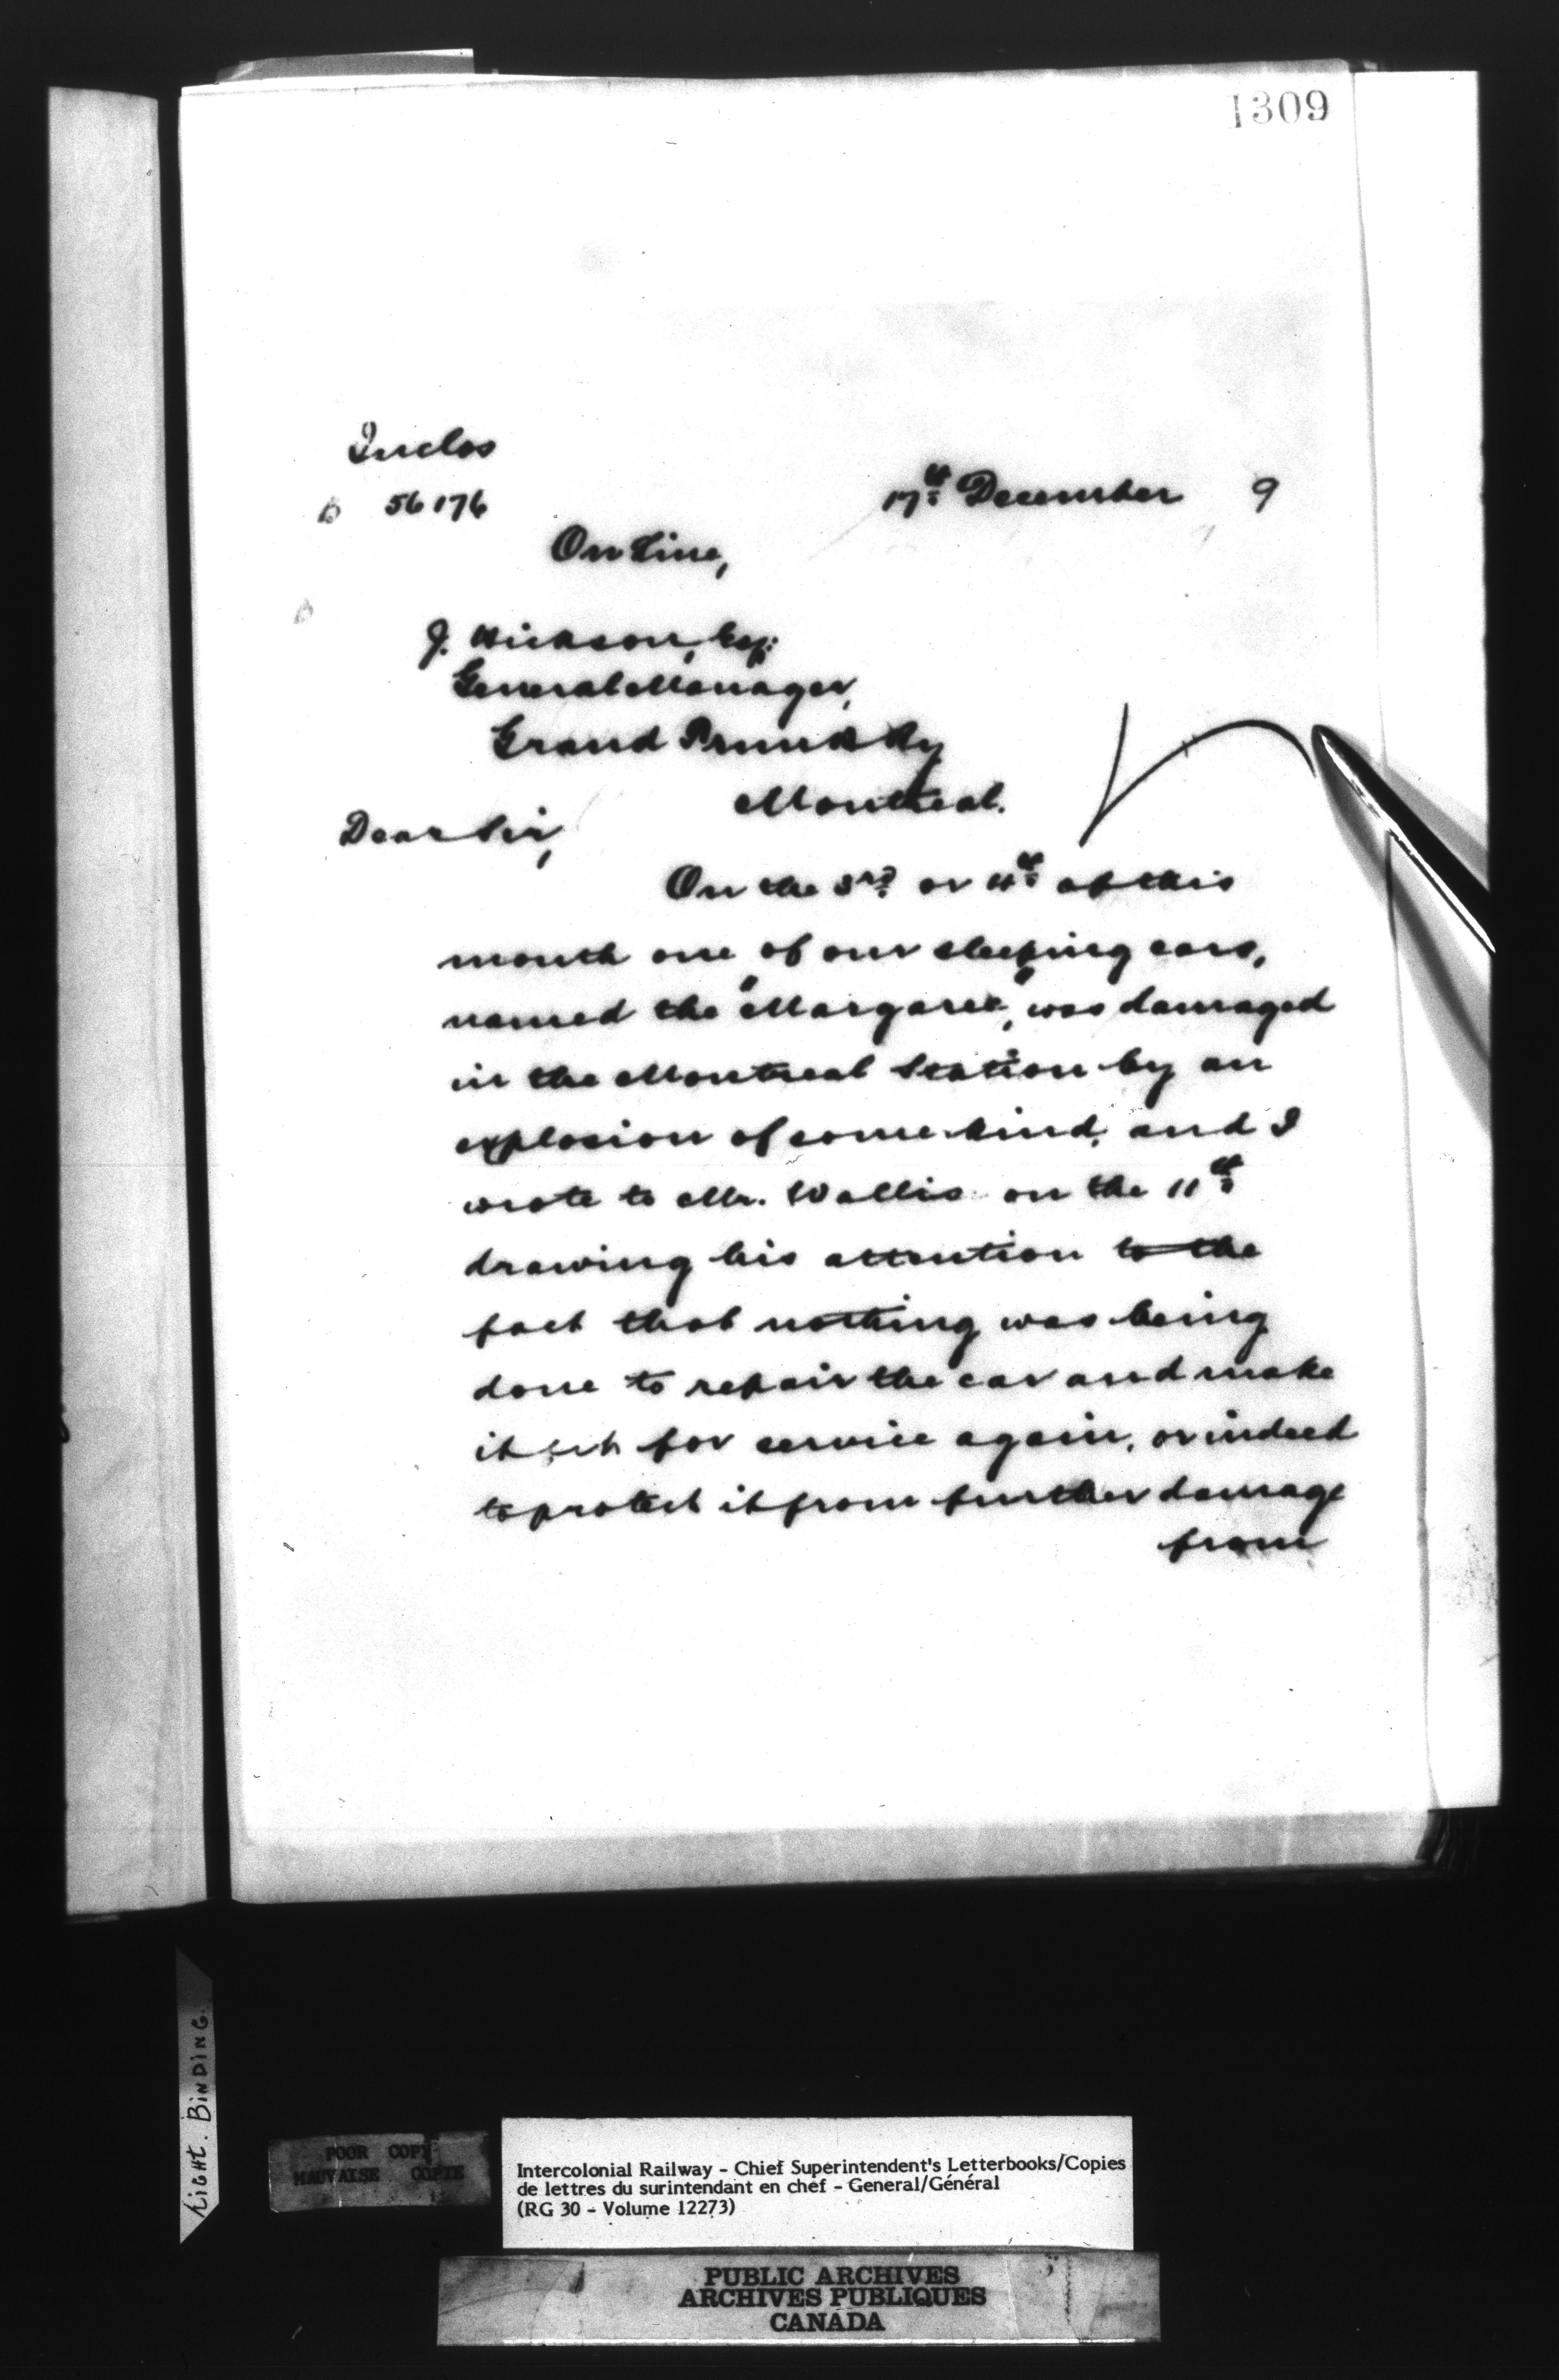 1309
Inclos
56176
17th December 9
On Line,
J. Hickson, Esq:
General Manager,
Grand Trunk Ry
Montreal.
Dear Sir,
On the 3rd or 4th of this
month one of our sleeping cars,
named the "Margaree", was damaged
in the Montreal Station by an
explosion of some kind, and I
wrote to Mr. Wallis on the 11th
drawing his attention to the
fact that nothing was being
done to repair the car and make
it fit for service again, or indeed
to protect it from further damage
from
TIGHT. BINDING.
POOR COPY
MAUVAISE COPIE
Intercolonial Railway - Chief Superintendent's Letterbooks/Copies
de lettres du surintendant en chef - General/Général
(RG 30 - Volume 12273)
PUBLIC ARCHIVES
ARCHIVES PUBLIQUES
CANADA